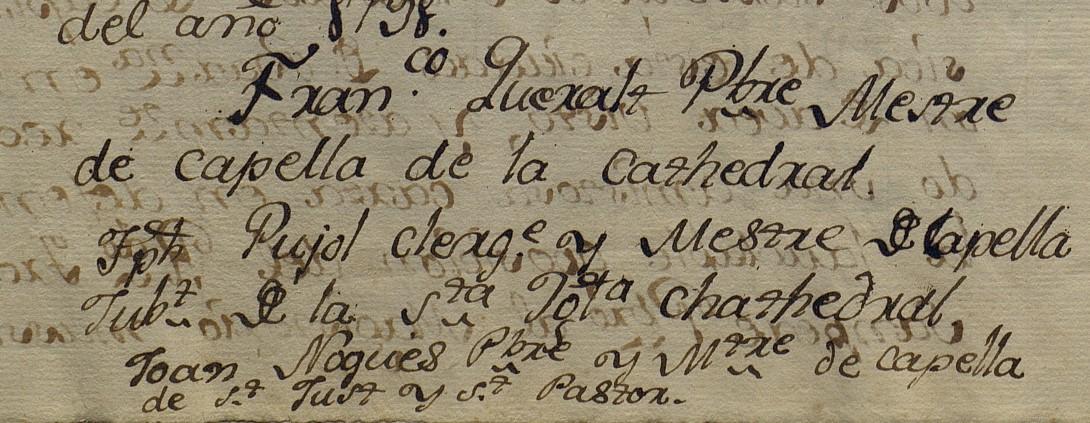 del año 1798.
Fran.co Queralt Pbre Mestre
de capella de la Cathedral
Jph Pujol clerg.e y Mestre de Capella
Jubt de la Sta Iglª Chathedral
Joan Nogués Pbre y Mtre de capella
de S.t Just y S.t Pastor.